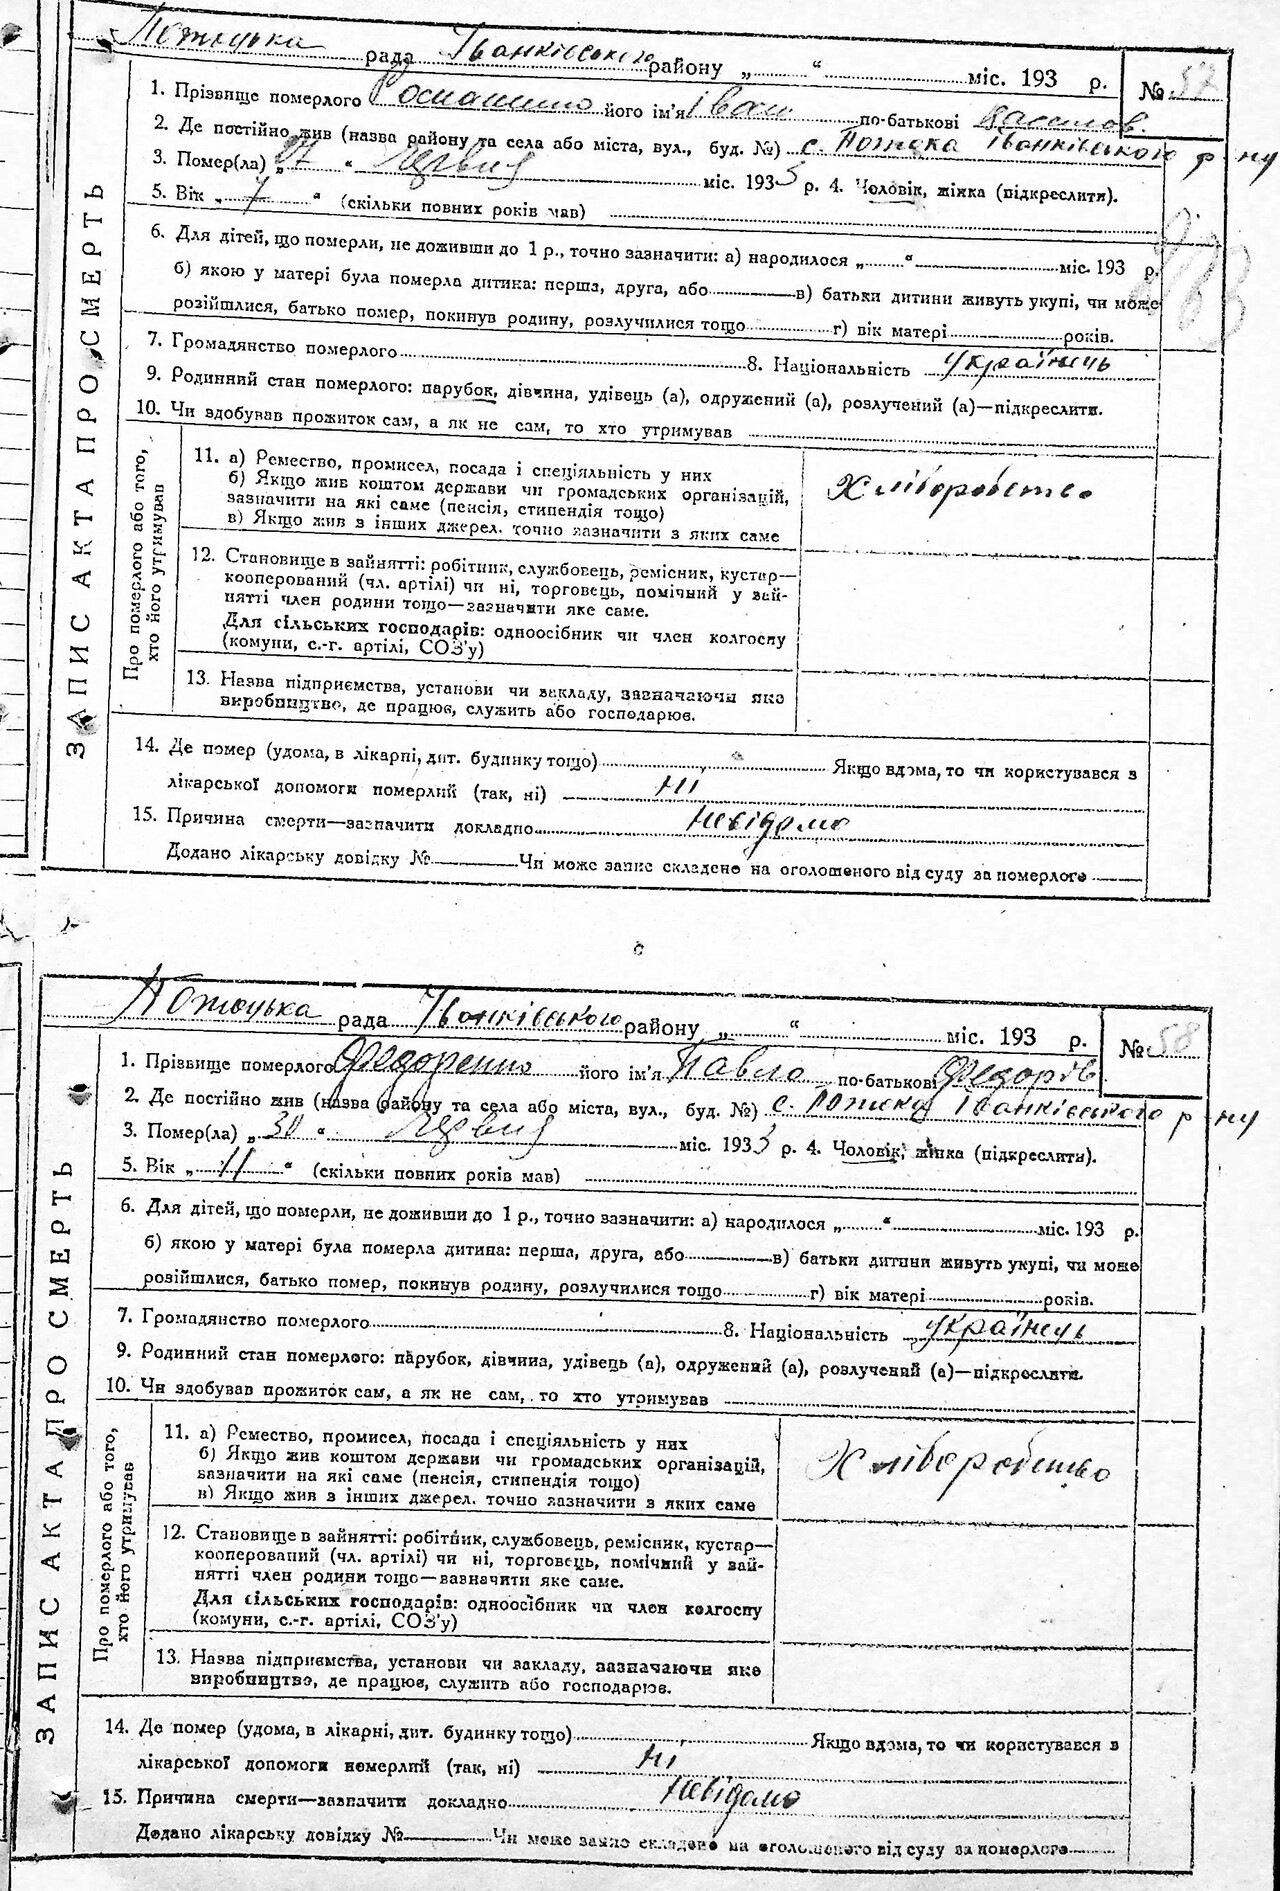 Потоцька рада Іванківського району „ “ міс. 193 р. № 57
1. Прізвище померлого його ім'я Іван по-батькові Василов.
2. Де постійно жив (назва району та села або міста, вул., буд. №) с. Потока Іванківського р-ну
3. Помер(ла) „27 “ червня міс. 1933 р. 4. Чоловік, жінка (підкреслити).
5. Вік „ 7 “ (скільки повних років мав)
6. Для дітей, що померли, не доживши до 1 р., точно зазначити: а) народилося „ “ міс. 193 р.
б) якою у матері була померла дитина: перша, друга, або в) батьки дитини живуть укупі, чи може
розійшлися, батько помер, покинув родину, розлучилися тощо г) вік матері років.
7. Громадянство померлого 8. Національність українець
9. Родинний стан померлого: парубок, дівчина, удівець (а), одружений (а), розлучений (а)—підкреслити.
10. Чи здобував прожиток сам, а як не сам, то хто утримував
ЗАПИС АКТА ПРО СМЕРТЬ
Про померлого або того,
хто його утримував
11. а) Ремество, промисел, посада і спеціяльність у них
б) Якщо жив коштом держави чи громадських організацій,
зазначити на які саме (пенсія, стипендія тощо)
в) Якщо жив з інших джерел. точно зазначити з яких саме
Хліборобство
12. Становище в зайнятті: робітник, службовець, ремісник, кустар—
кооперований (чл. артілі) чи ні, торговець, помічний у зай-
нятті член родини тощо—зазначити яке саме.
Для сільських господарів: одноосібник чи член колгоспу
(комуни, с.-г. артілі, СОЗ'у)
13. Назва підприємства, установи чи закладу, зазначаючи яке
виробництво, де працює, служить або господарює.
14. Де помер (удома, в лікарні, дит. будинку тощо) Якщо вдома, то чи користувався з
лікарської допомоги померлий (так, ні) ні
15. Причина смерти—зазначити докладно невідомо
Додано лікарську довідку № Чи може запис складене на оголошеного від суду за померлого
Потоцька рада Іванківського району „ “ міс. 193 р. № 58
1. Прізвище померлого Федоренко його ім'я Павло по-батькові Федорів
2. Де постійно жив (назва району та села або міста, вул., буд. №) с. Потока Іванківського р-ну
3. Помер(ла) „ 30 “ червня міс. 1933 р. 4. Чоловік, жінка (підкреслити).
5. Вік „ 11 “ (скільки повних років мав)
6. Для дітей, що померли, не доживши до 1 р., точно зазначити: а) народилося „ “ міс. 193 р.
б) якою у матері була померла дитина: перша, друга, або в) батьки дитини живуть укупі, чи може
розійшлися, батько помер, покинув родину, розлучилися тощо г) вік матері років.
7. Громадянство померлого 8. Національність українець
9. Родинний стан померлого: парубок, дівчина, удівець (а), одружений (а), розлучений (а)—підкреслити.
10. Чи здобував прожиток сам, а як не сам, то хто утримував
ЗАПИС АКТА ПРО СМЕРТЬ
Про померлого або того,
хто його утримував
11. а) Ремество, промисел, посада і спеціяльність у них
б) Якщо жив коштом держави чи громадських організацій,
зазначити на які саме (пенсія, стипендія тощо)
в) Якщо жив з інших джерел. точно зазначити з яких саме
Хліборобство
12. Становище в зайнятті: робітник, службовець, ремісник, кустар—
кооперований (чл. артілі) чи ні, торговець, помічний у зай-
нятті член родини тощо—зазначити яке саме.
Для сільських господарів: одноосібник чи член колгоспу
(комуни, с.-г. артілі, СОЗ'у)
13. Назва підприємства, установи чи закладу, зазначаючи яке
виробництво, де працює, служить або господарює.
14. Де помер (удома, в лікарні, дит. будинку тощо) Якщо вдома, то чи користувався з
лікарської допомоги померлий (так, ні) ні
15. Причина смерти—зазначити докладно невідомо
Додано лікарську довідку № Чи може запис складене на оголошеного від суду за померлого